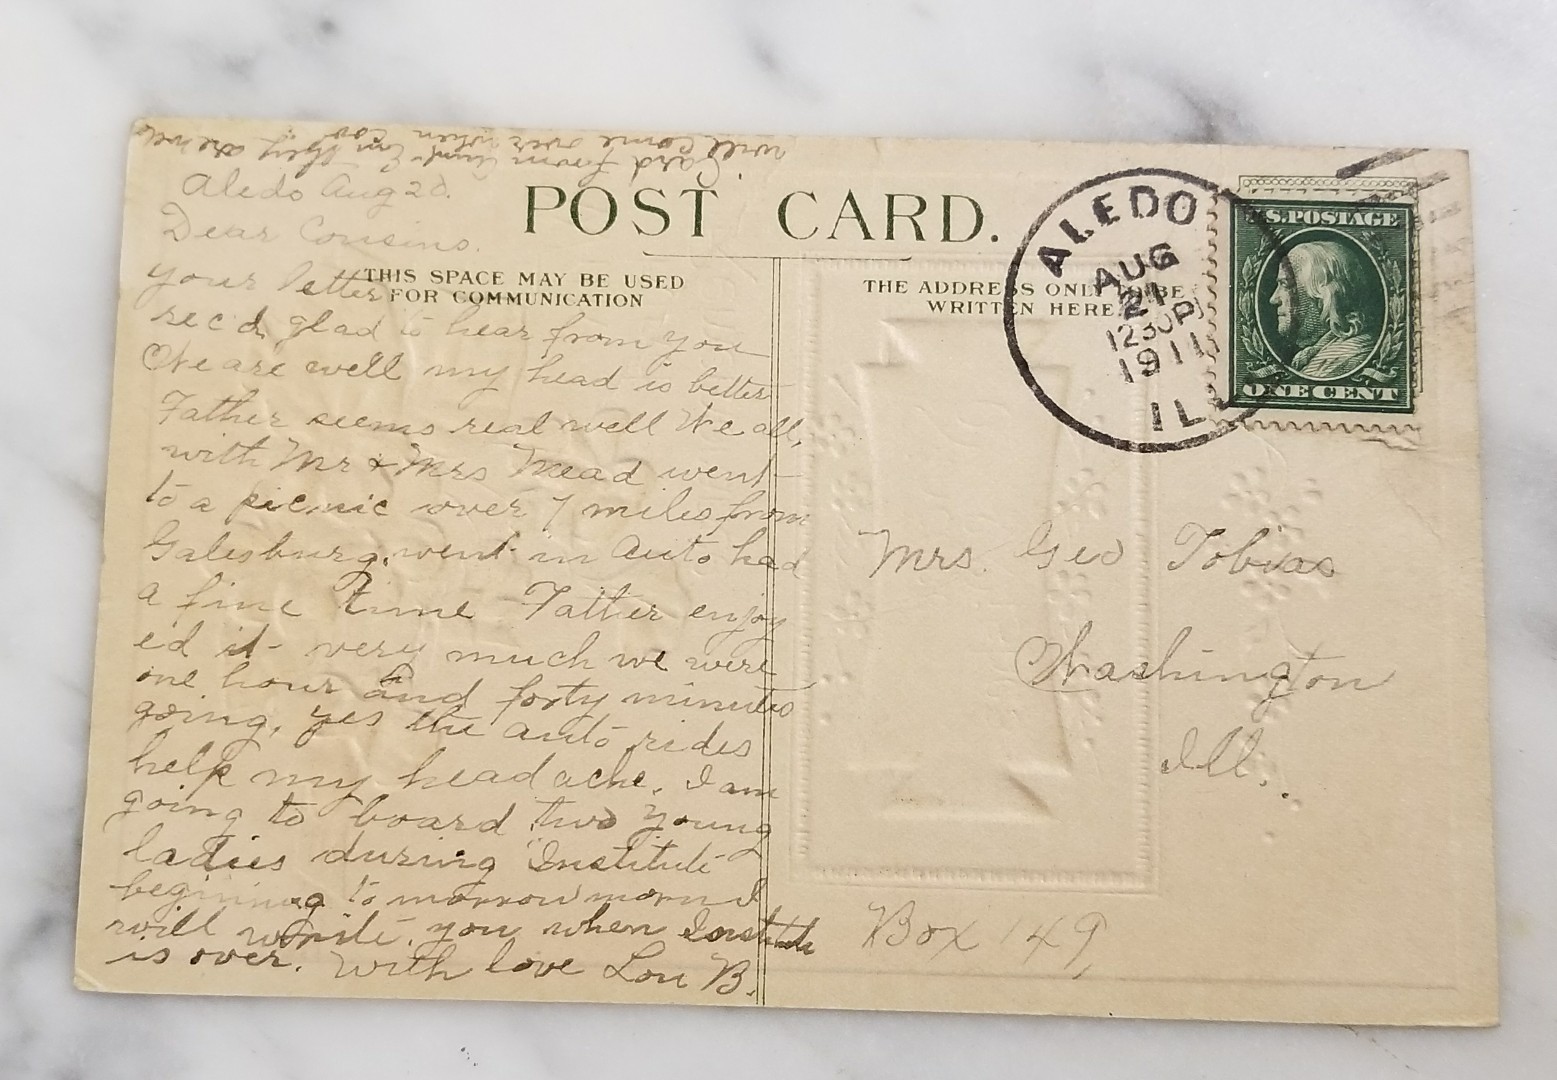 Card from Aunt Em they are well
will come over when cool
Aledo Aug 20.
POST CARD.
Dear Cousins.
THIS SPACE MAY BE USED
FOR COMMUNICATION
your letter
rec'd, glad to hear from you
We are well my head is better
Father seems real well We all,
with Mr & Mrs Mead went
to a picnic over 7 miles from
Galesburg, went in Auto had
a fine time Father enjoy
ed it very much we were
one hour and forty minutes
going, yes the auto rides
help my head ache. I am
going to board two young
ladies during Institute
beginning to morrow morn I
will write you when Institute
is over. With love Lou B.
THE ADDRESS ONLY TO BE
WRITTEN HERE
ALEDO
AUG
21
1230P
1911
IL
U.S. POSTAGE
ONE CENT
Mrs. Geo Tobias
Washington
Ill.
Box 149